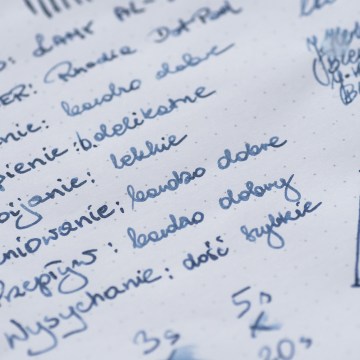 O: LAMY AL-
ER: Rhodia Dot Pad
nie: bardzo dobre
pienie: b. delikatne
bijanie: lekkie
niowanie: bardzo dobre
Przepływ: bardzo dobry
Wysychanie: dość szybkie
3s
5s
20s